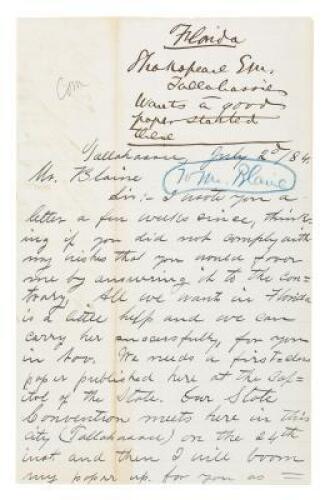 Florida
Shakspeare Em.
Tallahassee
Wants a good
paper started
there
Com
Tallahassee July 2d/84
To Mr. Blaine
Mr. Blaine
Sir:- I wrote you a
letter a few weeks since, think-
ing if you did not comply with
my wishes that you would favor
me by answering it to the con-
trary. All we want in Florida
is a little help and we can
carry her successfully, for you
in Nov. We needs a first-class
paper published here at the Cap-
itol of the State. Our State
Convention meets here in this
city (Tallahassee) on the 24th
inst and then I will boom
my paper up for you as